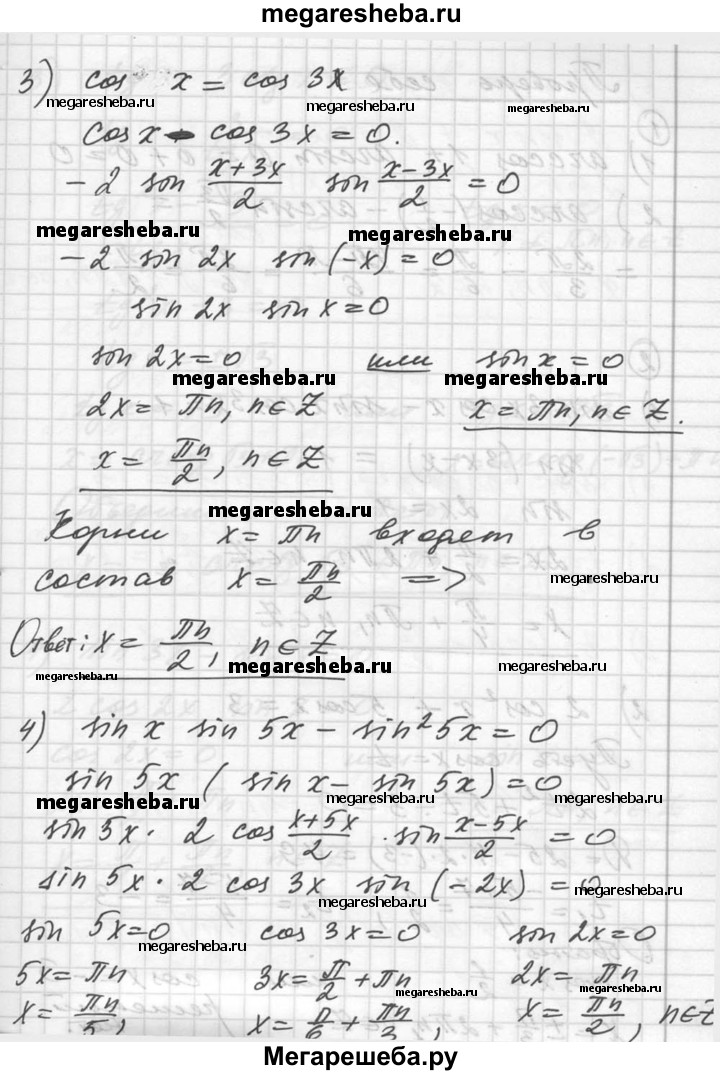 megaresheba.ru
3) cos x = cos 3x
megaresheba.ru megaresheba.ru megaresheba.ru
cos x - cos 3x = 0.
-2 sin (x+3x)/2 sin (x-3x)/2 = 0
megaresheba.ru megaresheba.ru
-2 sin 2x sin (-x) = 0
sin 2x sin x = 0
sin 2x = 0 или sin x = 0
megaresheba.ru megaresheba.ru
2x = πn, n∈Z x = πn, n∈Z.
x = πn/2, n∈Z
megaresheba.ru
Корни x = πn входят в
состав x = πn/2 =>
megaresheba.ru
Ответ: x = πn/2, n∈Z
megaresheba.ru megaresheba.ru megaresheba.ru
4) sin x sin 5x - sin² 5x = 0
sin 5x (sin x - sin 5x) = 0
megaresheba.ru megaresheba.ru megaresheba.ru
sin 5x · 2 cos (x+5x)/2 · sin (x-5x)/2 = 0
megaresheba.ru
sin 5x · 2 cos 3x sin (-2x) = 0
megaresheba.ru
sin 5x = 0 cos 3x = 0 sin 2x = 0
megaresheba.ru megaresheba.ru
5x = πn 3x = π/2 + πn 2x = πn
megaresheba.ru
x = πn/5, x = π/6 + πn/3, x = πn/2, n∈Z
megaresheba.ru
Мегарешеба.ру